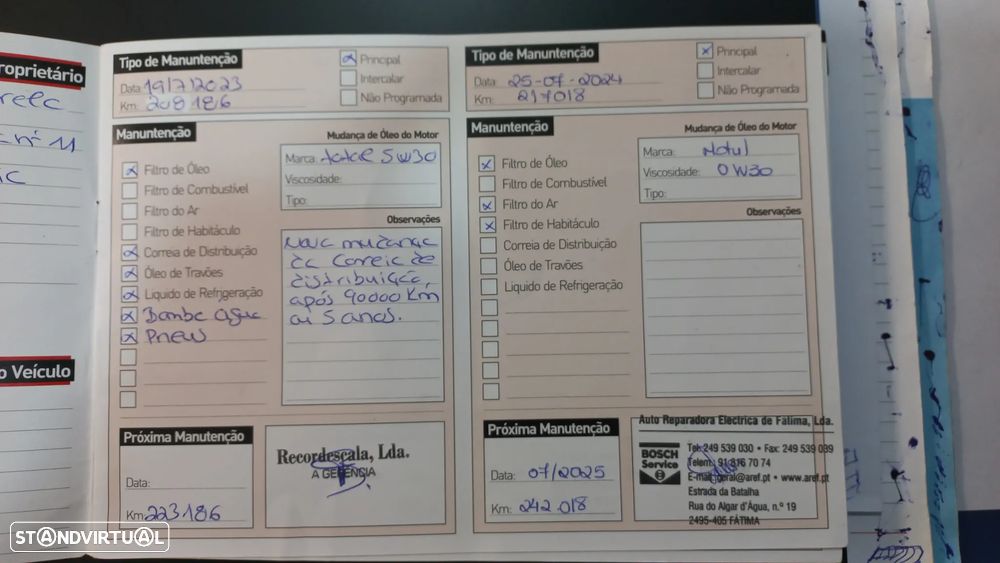 roprietário
o Veículo
Tipo de Manuntenção
Principal
Intercalar
Não Programada
Data: 19/7/2023
Km: 208186
Manuntenção
Mudança de Óleo do Motor
Filtro de Óleo
Filtro de Combustível
Filtro do Ar
Filtro de Habitáculo
Correia de Distribuição
Óleo de Travões
Liquido de Refrigeração
Bomba água
Pneus
Marca: total 5W30
Viscosidade:
Tipo:
Observações
Nova mudança
da correia de
distribuição,
após 90000 Km
ou 5 anos.
Próxima Manutenção
Data:
Km: 223186
Recordescala, Lda.
A GERÊNCIA
Tipo de Manuntenção
Principal
Intercalar
Não Programada
Data: 25-07-2024
Km: 217018
Manuntenção
Mudança de Óleo do Motor
Filtro de Óleo
Filtro de Combustível
Filtro do Ar
Filtro de Habitáculo
Correia de Distribuição
Óleo de Travões
Liquido de Refrigeração
Marca: Motul
Viscosidade: 0W30
Tipo:
Observações
Próxima Manutenção
Data: 07/2025
Km: 242.018
Auto Reparadora Electrica de Fátima, Lda.
BOSCH
Service
Tel: 249 539 030 • Fax: 249 539 039
Telem: 91 816 70 74
E-mail: geral@aref.pt • www.aref.pt
Estrada da Batalha
Rua do Algar d'Água, n.º 19
2495-405 FÁTIMA
STANDVIRTUAL